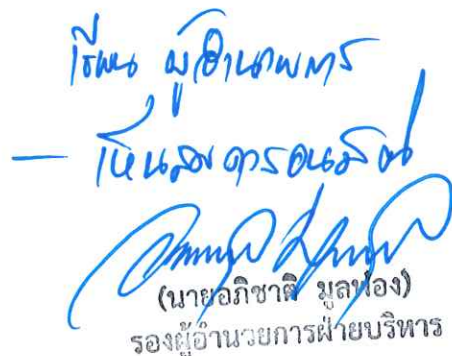 เรียน ผู้อำนวยการ
— เห็นสมควรอนุมัติ
(นายอภิชาติ มูลฟอง)
รองผู้อำนวยการฝ่ายบริหาร